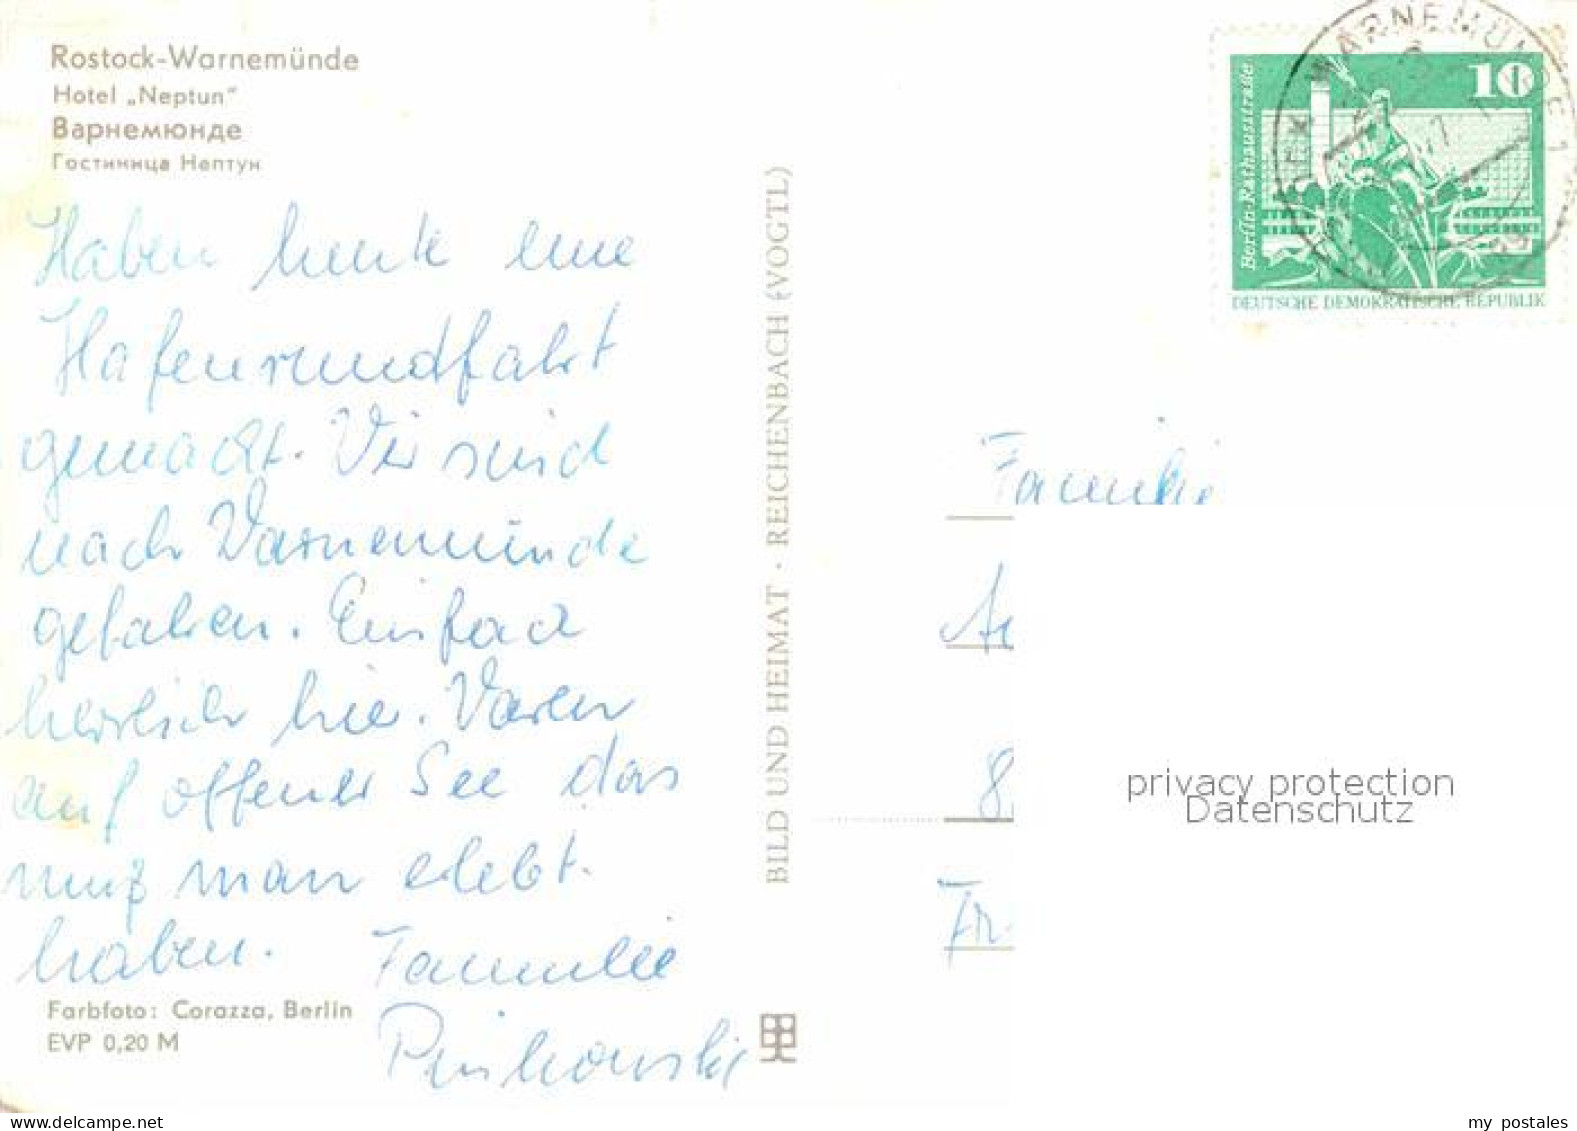 Rostock-Warnemünde
Hotel „Neptun"
Варнемюнде
Гостиница Нептун
Haben heute eine
Hafenrundfahrt
gemacht. Wir sind
nach Warnemünde
gefahren. Einfach
herrlich hier. Waren
auf offener See das
muß man erlebt
haben. Familie
Pinkowski
Farbfoto: Corazza, Berlin
EVP 0,20 M
BILD UND HEIMAT · REICHENBACH (VOGTL)
WARNEMÜNDE 1
10
Berlin-Rathausstraße
DEUTSCHE DEMOKRATISCHE REPUBLIK
Familie
8
Fr.
privacy protection
Datenschutz
my postales